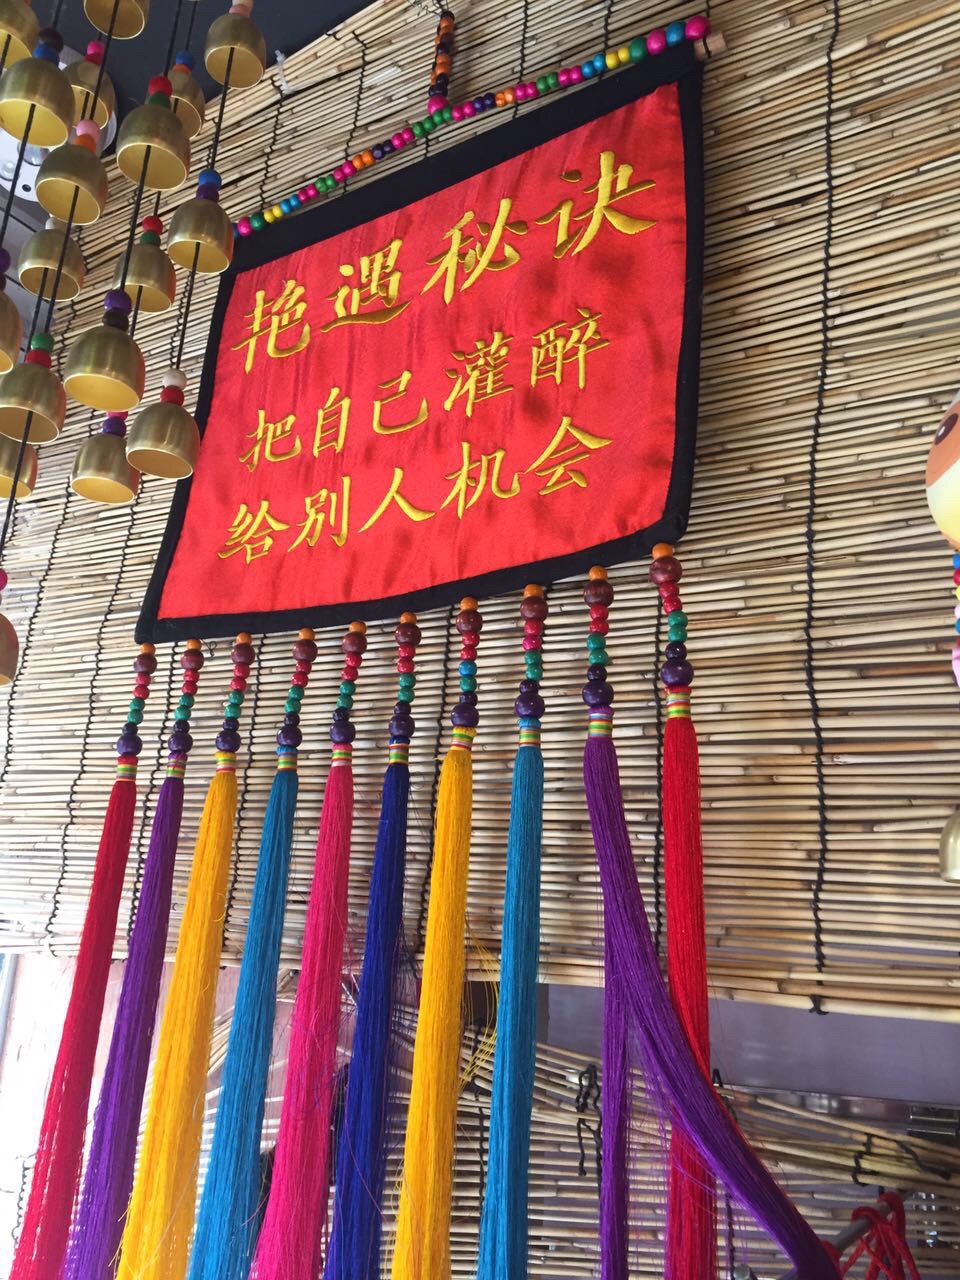 艳遇秘诀
把自己灌醉
给别人机会